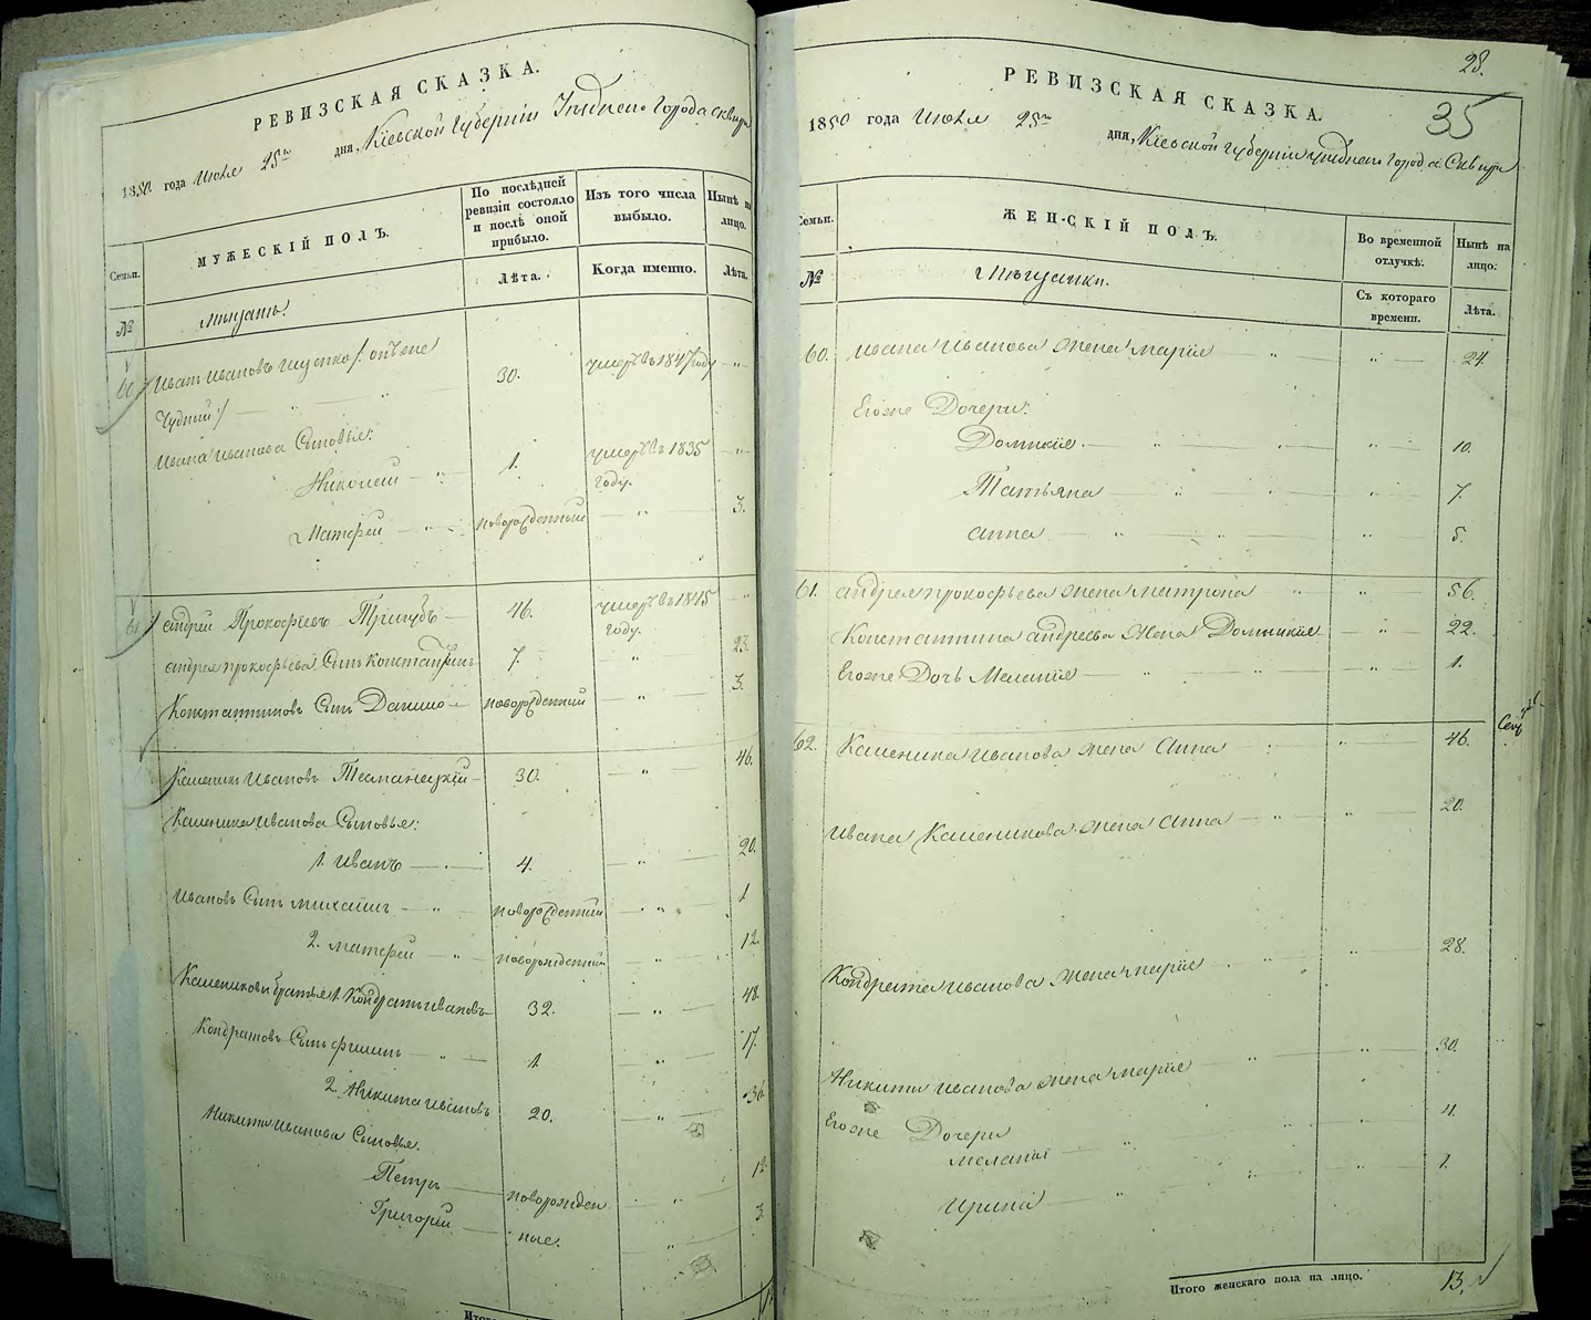 РЕВИЗСКАЯ СКАЗКА.
1850 года Июля 25го дня, Кіевской Губерніи Уѣзднаго Города Сквиры
Семьи.
МУЖЕСКІЙ ПОЛЪ.
По послѣдней ревизіи состояло и послѣ оной прибыло.
Изъ того числа выбыло.
Нынѣ на лицо.
Лѣта.
Когда именно.
Лѣта.
№
мѣщанъ.
60 Иванъ Ивановъ
30. умеръ въ 1847 году „
Чудный /
Ивана Иванова Сыновья:
Николай 1. умеръ въ 1835 году. „
Матфей новорожденный „ 3.
61 Андрей Прокофіевъ Тригубъ 46. умеръ въ 1845 году. „
Андрея Прокофьева Сынъ Константинъ 7. „ 23.
Константиновъ Сынъ Данило новорожденный „ 3.
Каленикъ Ивановъ 30. „ 46.
Каленика Иванова Сыновья:
1. Иванъ 4. „ 20.
Ивановъ Сынъ Михаилъ „ новорожденный „ 1
2. Матфей „ новорожденный „ 12.
Калениковы братья 1. Кондратъ Ивановъ 32. „ 48.
Кондратовъ Сынъ Филипъ „ 1. „ 17.
2. Никита Ивановъ 20. „ 36.
Никиты Иванова Сыновья.
Петръ новорожден „ 12.
Григорій ные. „ 3.
28.
35
РЕВИЗСКАЯ СКАЗКА.
1850 года Июля 25го дня, Кіевской Губерніи Уѣзднаго Города Сквиры
Семьи.
ЖЕНСКІЙ ПОЛЪ.
Во временной отлучкѣ.
Нынѣ на лицо.
№
Мѣщанки.
Съ котораго времени.
Лѣта.
60. Ивана Иванова жена Марія „ „ 24.
Его же Дочери:
Домникія „ „ 10.
Татьяна „ „ 7.
Анна „ „ 5.
61. Андрея Прокофьева жена Матрона „ „ 56.
Константина Андреева жена Домникія „ 22.
Его же Дочь Меланія „ „ 1.
62. Каленика Иванова жена Анна „ 46.
Ивана Каленикова жена Анна „ „ 20.
Кондрата Иванова жена Марія „ „ 28.
Никиты Иванова жена Марія „ „ 30.
Его же Дочери
Меланія „ „ 11.
Ирина „ „ 1.
Итого женскаго пола на лицо. 13.